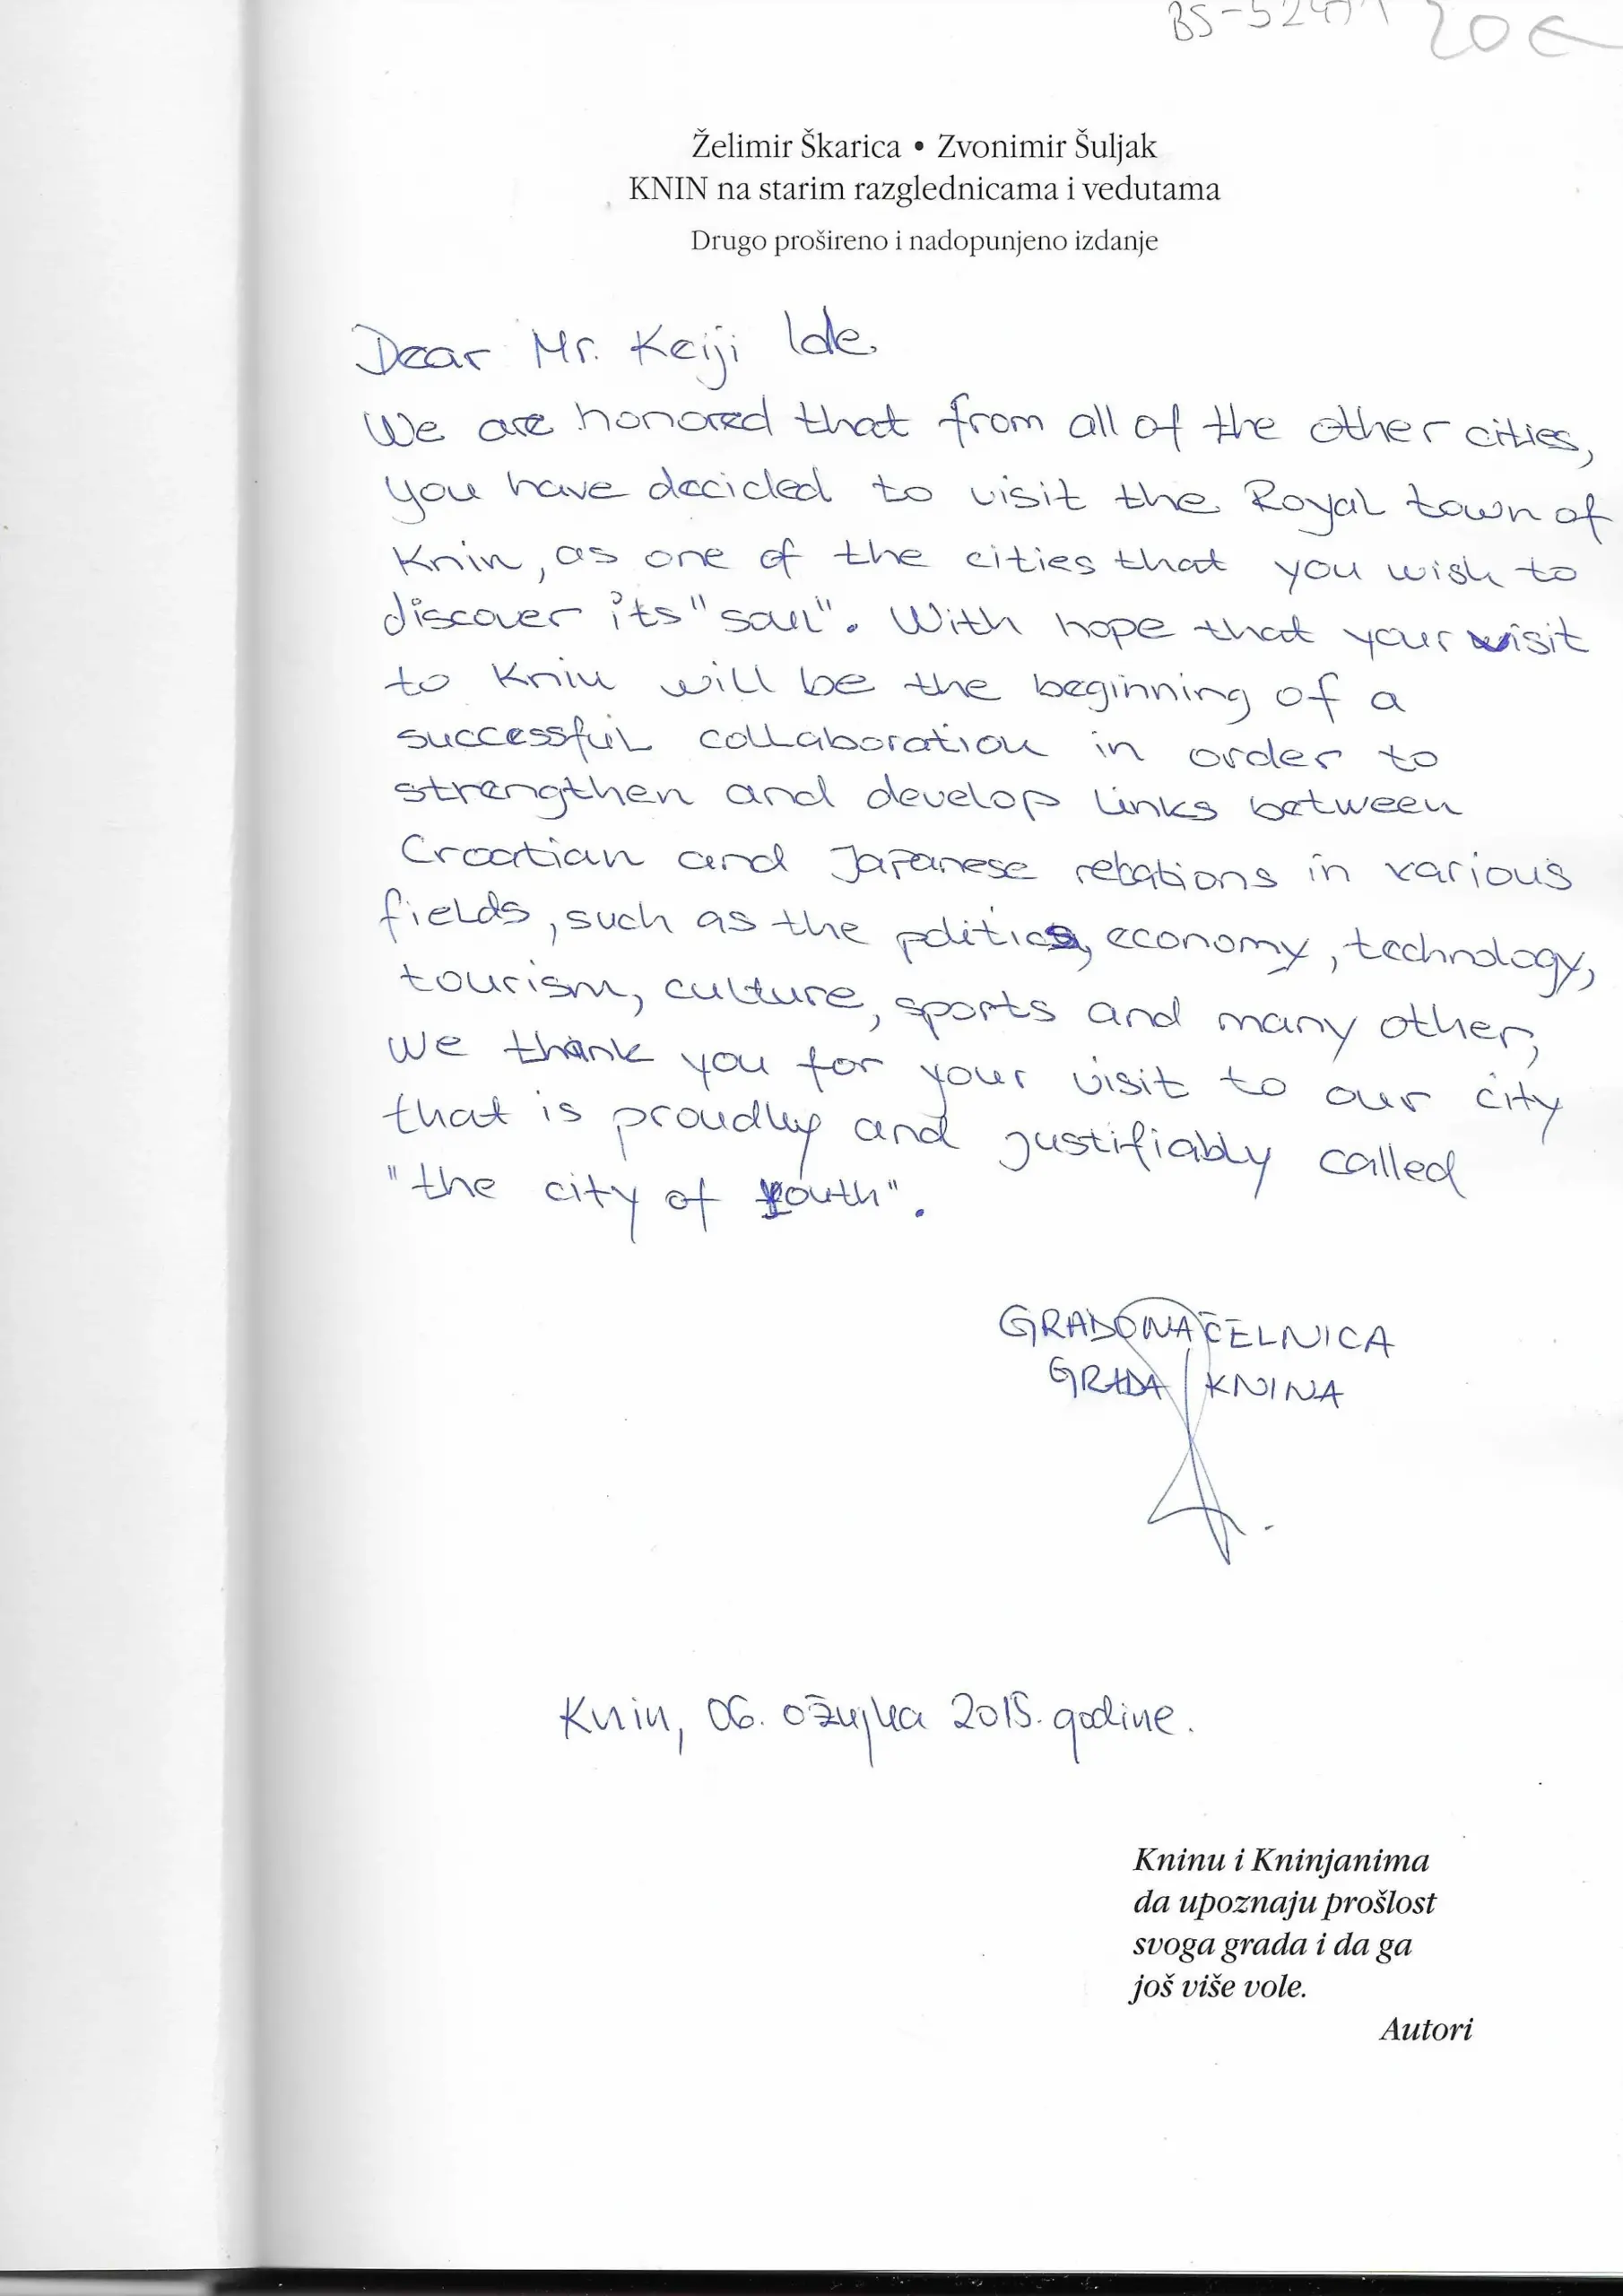 20 €
Želimir Škarica • Zvonimir Šuljak
KNIN na starim razglednicama i vedutama
Drugo prošireno i nadopunjeno izdanje
Dear Mr. Keiji Ide
We are honored that from all of the other cities,
you have decided to visit the Royal town of
Knin, as one of the cities that you wish to
discover its "soul". With hope that your visit
to Knin will be the beginning of a
successful collaboration in order to
strengthen and develop links between
Croatian and Japanese relations in various
fields, such as the politics, economy, technology,
tourism, culture, sports and many other,
We thank you for your visit to our city
that is proudly and justifiably called
"the city of youth".
GRADONAČELNICA
GRADA KNINA
Knin, 06. ožujka 2015. godine.
Kninu i Kninjanima
da upoznaju prošlost
svoga grada i da ga
još više vole.
Autori